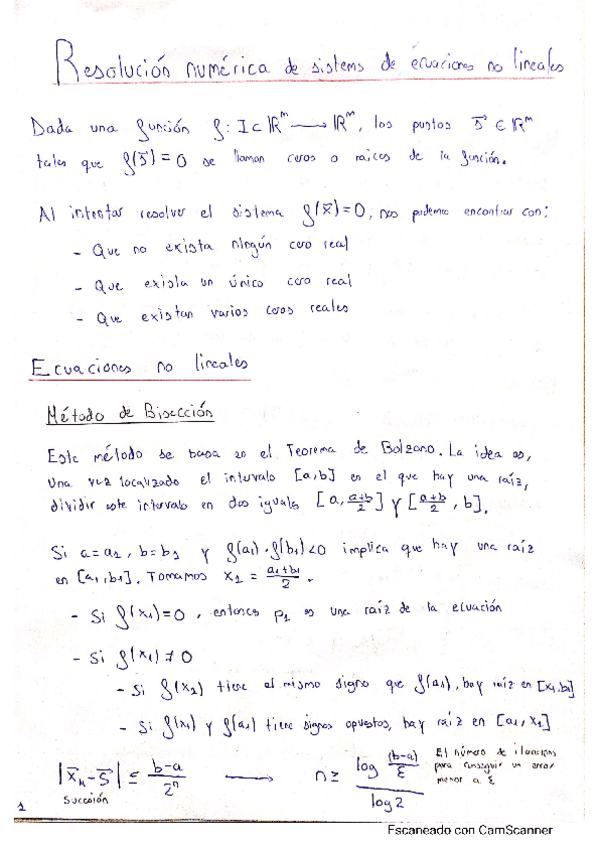 Resolución numérica de sistems de ecuaciones no lineales
Dada una función f: I⊂ℝᵐ ⟶ ℝᵐ, los puntos s⃗ ∈ ℝᵐ
tales que f(s⃗) = 0 se llaman ceros o raices de la función.
Al intentar resolver el sistema f(x⃗)=0, nos podemos encontrar con:
- Que no exista ningún cero real
- Que exista un único cero real
- Que existan varios ceros reales
Ecuaciones no lineales
Método de Bisección
Este método se basa en el Teorema de Bolzano. La idea es,
una vez localizado el intervalo [a,b] en el que hay una raíz,
dividir este intervalo en dos iguals [a, (a+b)/2] y [(a+b)/2, b].
Si a=a₁, b=b₁ y f(a₁)·f(b₁)<0 implica que hay una raíz
en [a₁,b₁]. Tomamos x₁ = (a₁+b₁)/2.
- Si f(x₁)=0, entonces p₁ es una raíz de la ecuación
- Si f(x₁)≠0
- Si f(x₁) tiene el mismo signo que f(a₁), hay raíz en [x₁,b₁]
- Si f(x₁) y f(a₁) tiene signos opuestos, hay raíz en [a₁, x₁]
|x⃗ₙ-s⃗| ≤ (b-a)/2ⁿ ⟶ n ≥ log((b-a)/ε)/log 2
El número de iteracions
para conseguir un error
menor a ε
Sucesión
1
Escaneado con CamScanner